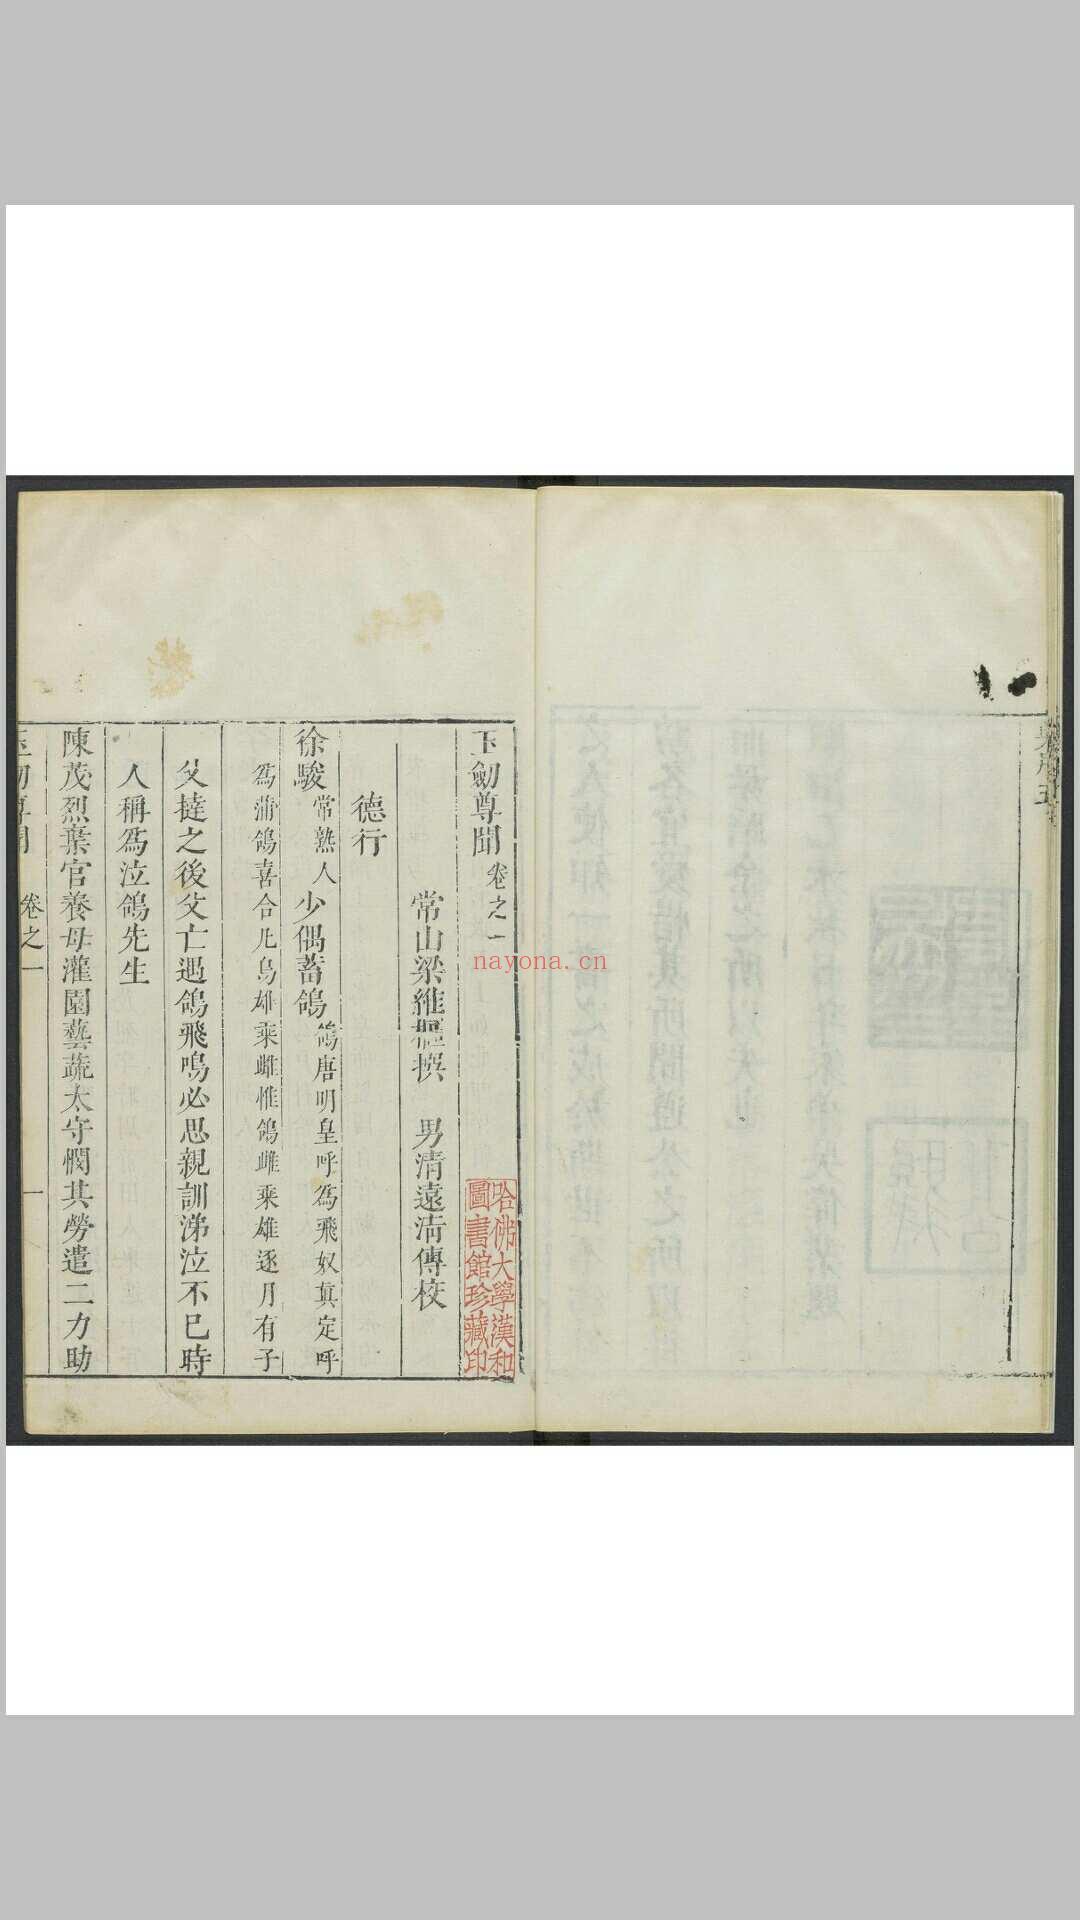 玉劒尊聞卷之一
常山梁維樞撰 男清遠清傳校
德行
徐駿常熟人少偶蓄鴿鴿唐明皇呼爲飛奴眞定呼
爲蒲鴿喜合凡鳥雄乘雌惟鴿雌乘雄逐月有子
父撻之後父亡遇鴿飛鳴必思親訓涕泣不已時
人稱爲泣鴿先生
陳茂烈棄官養母灌園藝蔬太守憫其勞遣二力助
玉劒尊聞 卷之一 一
哈佛大學漢和
圖書館珍藏印
nayona.cn